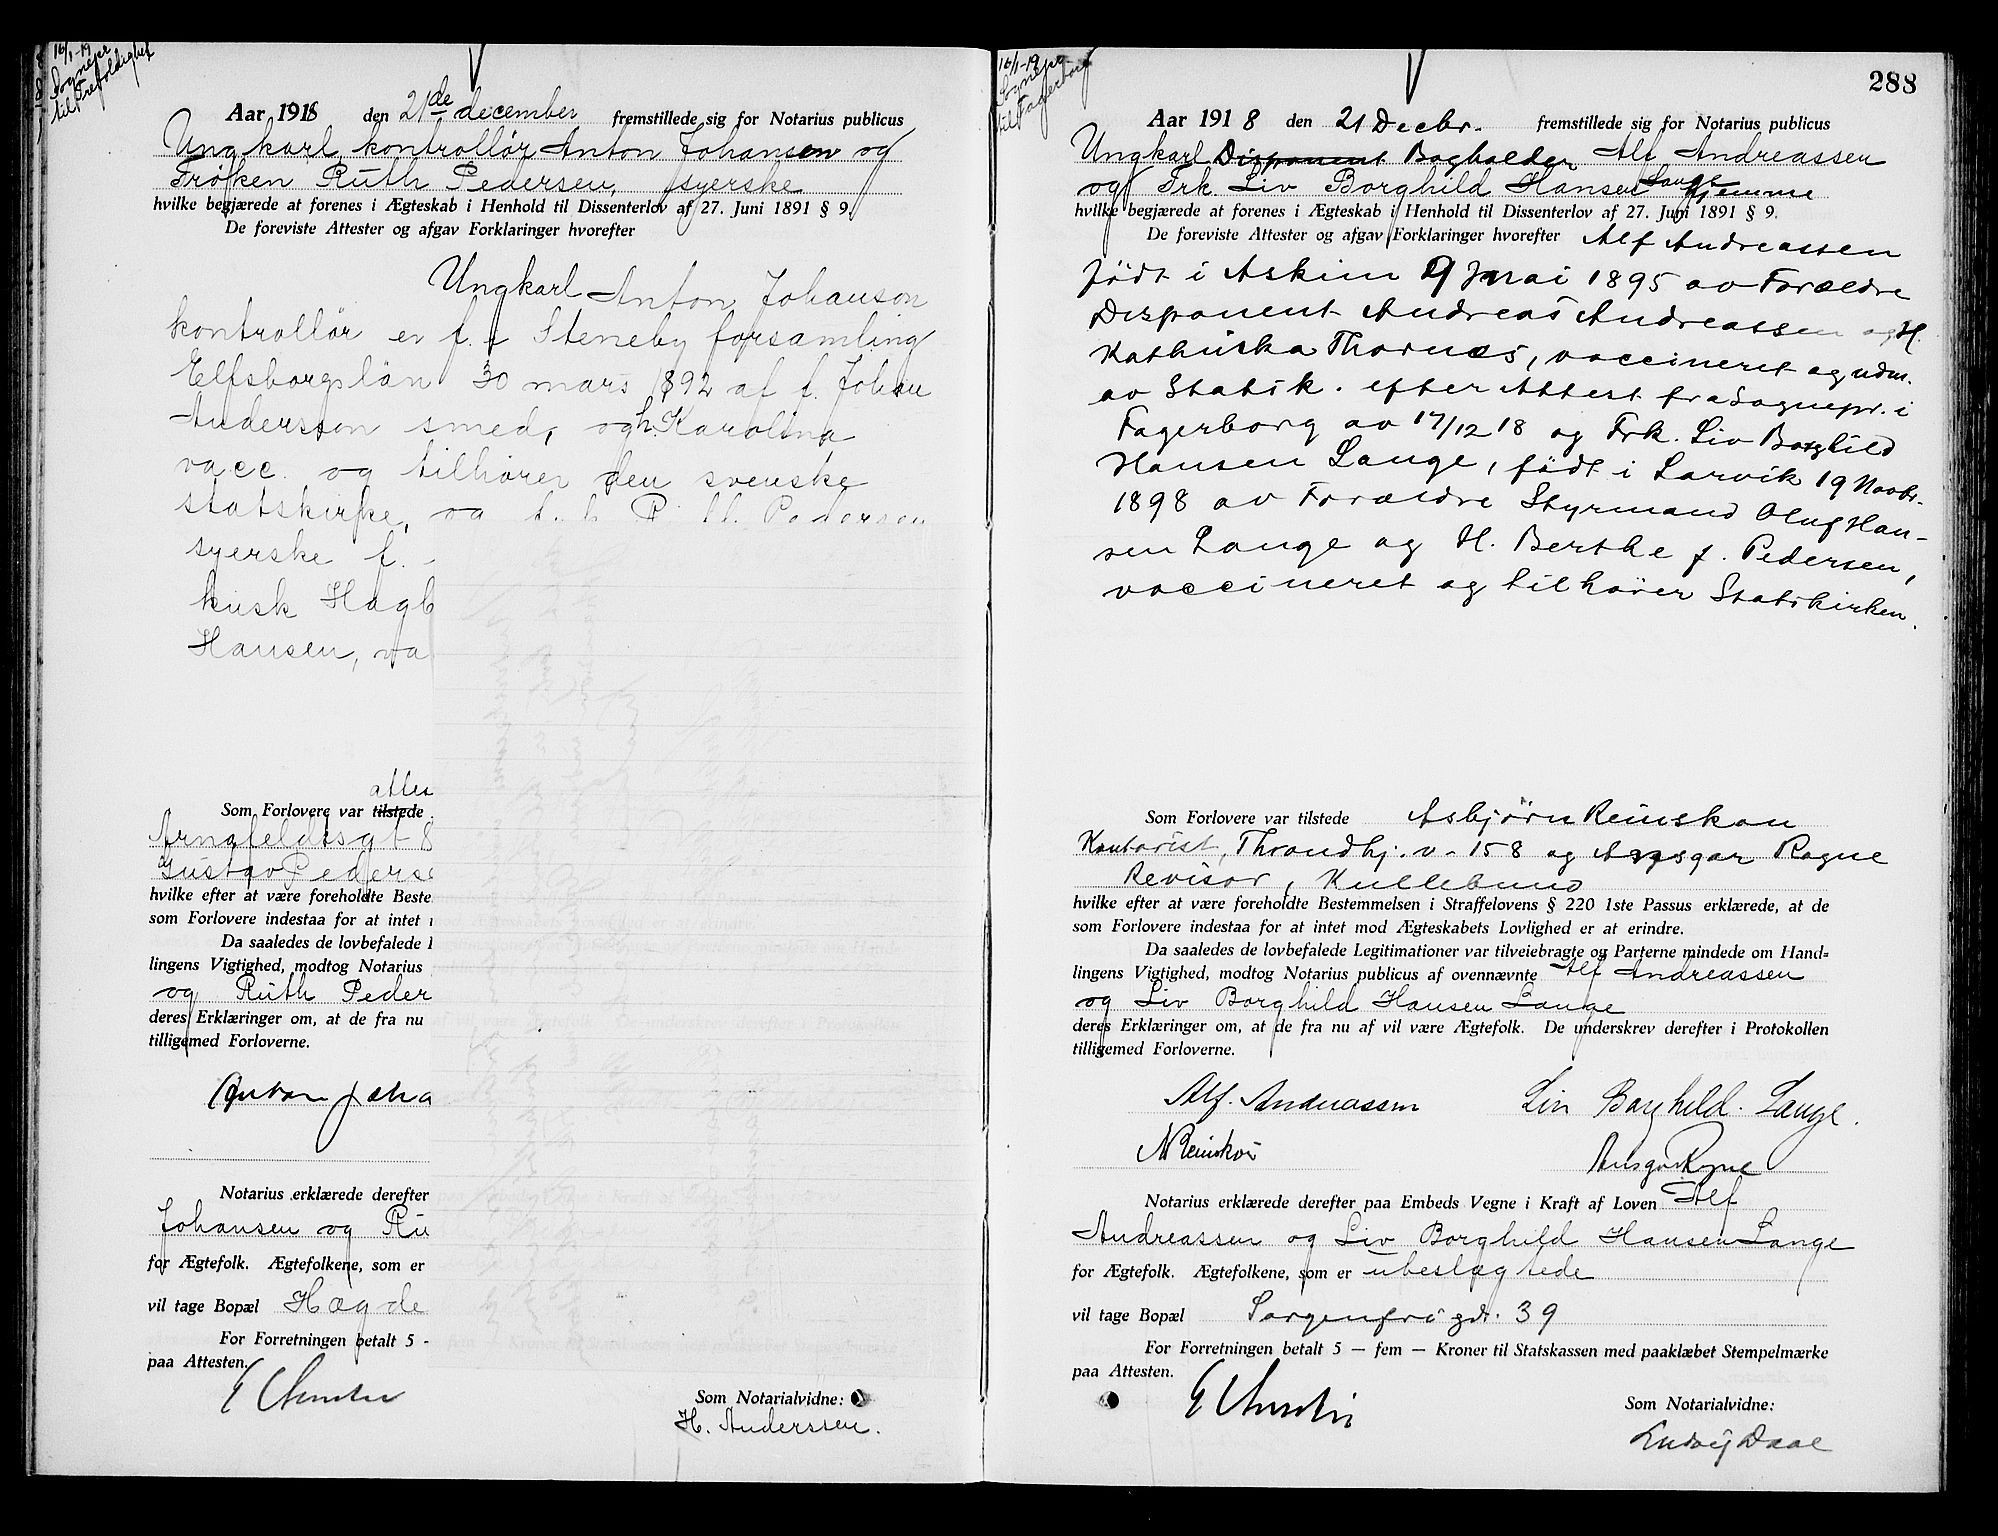 16/1-19
Sognepr
til Trefoldighet
Aar 1918 den 21de december fremstillede sig for Notarius publicus
Ungkarl kontrollør Anton Johansen og
Frøken Ruth Pedersen, syerske
hvilke begjærede at forenes i Ægteskab i Henhold til Dissenterlov af 27. Juni 1891 § 9.
De foreviste Attester og afgav Forklaringer hvorefter
Ungkarl Anton Johanson
kontrollør er f. i Steneby forsamling
Elfsborgslän 30 mars 1892 af f. Johan
Andersson smed, og h. Karolina
vacc. og tilhører den svenske
statskirke, og Pedersen
syerske f.
kusk Hagb
Hansen, va
attes
Som Forlovere var tilstede
Arnefeldtsgt 8
og Gustav Pederse
hvilke efter at være foreholdte Beste
som Forlovere indestaa for at intet
Da saaledes de lovbefalede
lingens Vigtighed, modtog Notarius
og Ruth Peder
deres Erklæringer om, at de fra nu
tilligemed Forloverne.
Anton Joha
Notarius erklærede derefter
Johansen og Ru
for Ægtefolk. Ægtefolkene, som er
vil tage Bopæl Hægde
For Forretningen betalt 5 -
paa Attesten.
Som Notarialvidne:
H. Anderssen.
288
16/1-19
Sognepr
til Fagerborg
Aar 1918 den 21 Decbr. fremstillede sig for Notarius publicus
Ungkarl Disponent Bogholder Alf Andreassen
og Frk. Liv Borghild Hansen Lange hjemme
hvilke begjærede at forenes i Ægteskab i Henhold til Dissenterlov af 27. Juni 1891 § 9.
De foreviste Attester og afgav Forklaringer hvorefter Alf Andreassen
født i Askim 9 mai 1895 av Forældre
Disponent Andreas Andreassen og H.
Kathinka Thornæs, vaccineret og udm.
av Statsk. efter Attest fra Sognepr. i
Fagerborg av 17/12 18 og Frk. Liv Borghild
Hansen Lange, født i Larvik 19 Novbr.
1898 av Forældre Styrmand Oluf Han-
sen Lange og H. Berthe f. Pedersen,
vaccineret og tilhører Statskirken.
Som Forlovere var tilstede Asbjørn Reinskou
Kontorist, Throndhj. v. 158 og Ansgar Rogne
Revisor, Kullebund
hvilke efter at være foreholdte Bestemmelsen i Straffelovens § 220 1ste Passus erklærede, at de
som Forlovere indestaa for at intet mod Ægteskabets Lovlighed er at erindre.
Da saaledes de lovbefalede Legitimationer var tilveiebragte og Parterne mindede om Hand=
lingens Vigtighed, modtog Notarius publicus af ovennævnte Alf Andreassen
og Liv Borghild Hansen Lange
deres Erklæringer om, at de fra nu af vil være Ægtefolk. De underskrev derefter i Protokollen
tilligemed Forloverne.
Alf. Andreassen Liv Borghild. Lange.
A Reinskou Ansgar Rogne
Notarius erklærede derefter paa Embeds Vegne i Kraft af Loven Alf
Andreassen og Liv Borghild Hansen Lange
for Ægtefolk. Ægtefolkene, som er ubeslægtede
vil tage Bopæl Sorgenfri gdt. 39
For Forretningen betalt 5 — fem — Kroner til Statskassen med paaklæbet Stempelmærke
paa Attesten.
Som Notarialvidne:
Ludvig Daae